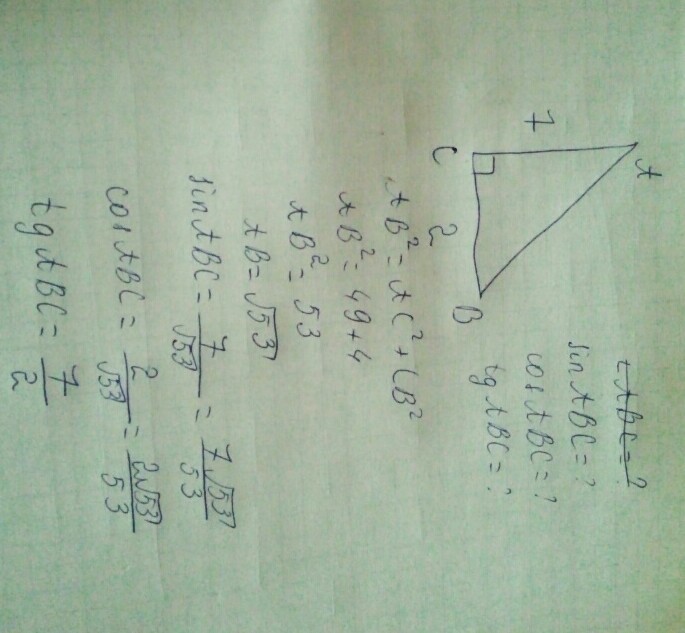 A
7
C
2
B
∠ABC=?
sinABC=?
cosABC=?
tgABC=?
AB²=AC²+CB²
AB²=49+4
AB²=53
AB=√53
sinABC=7/√53=7√53/53
cosABC=2/√53=2√53/53
tgABC=7/2